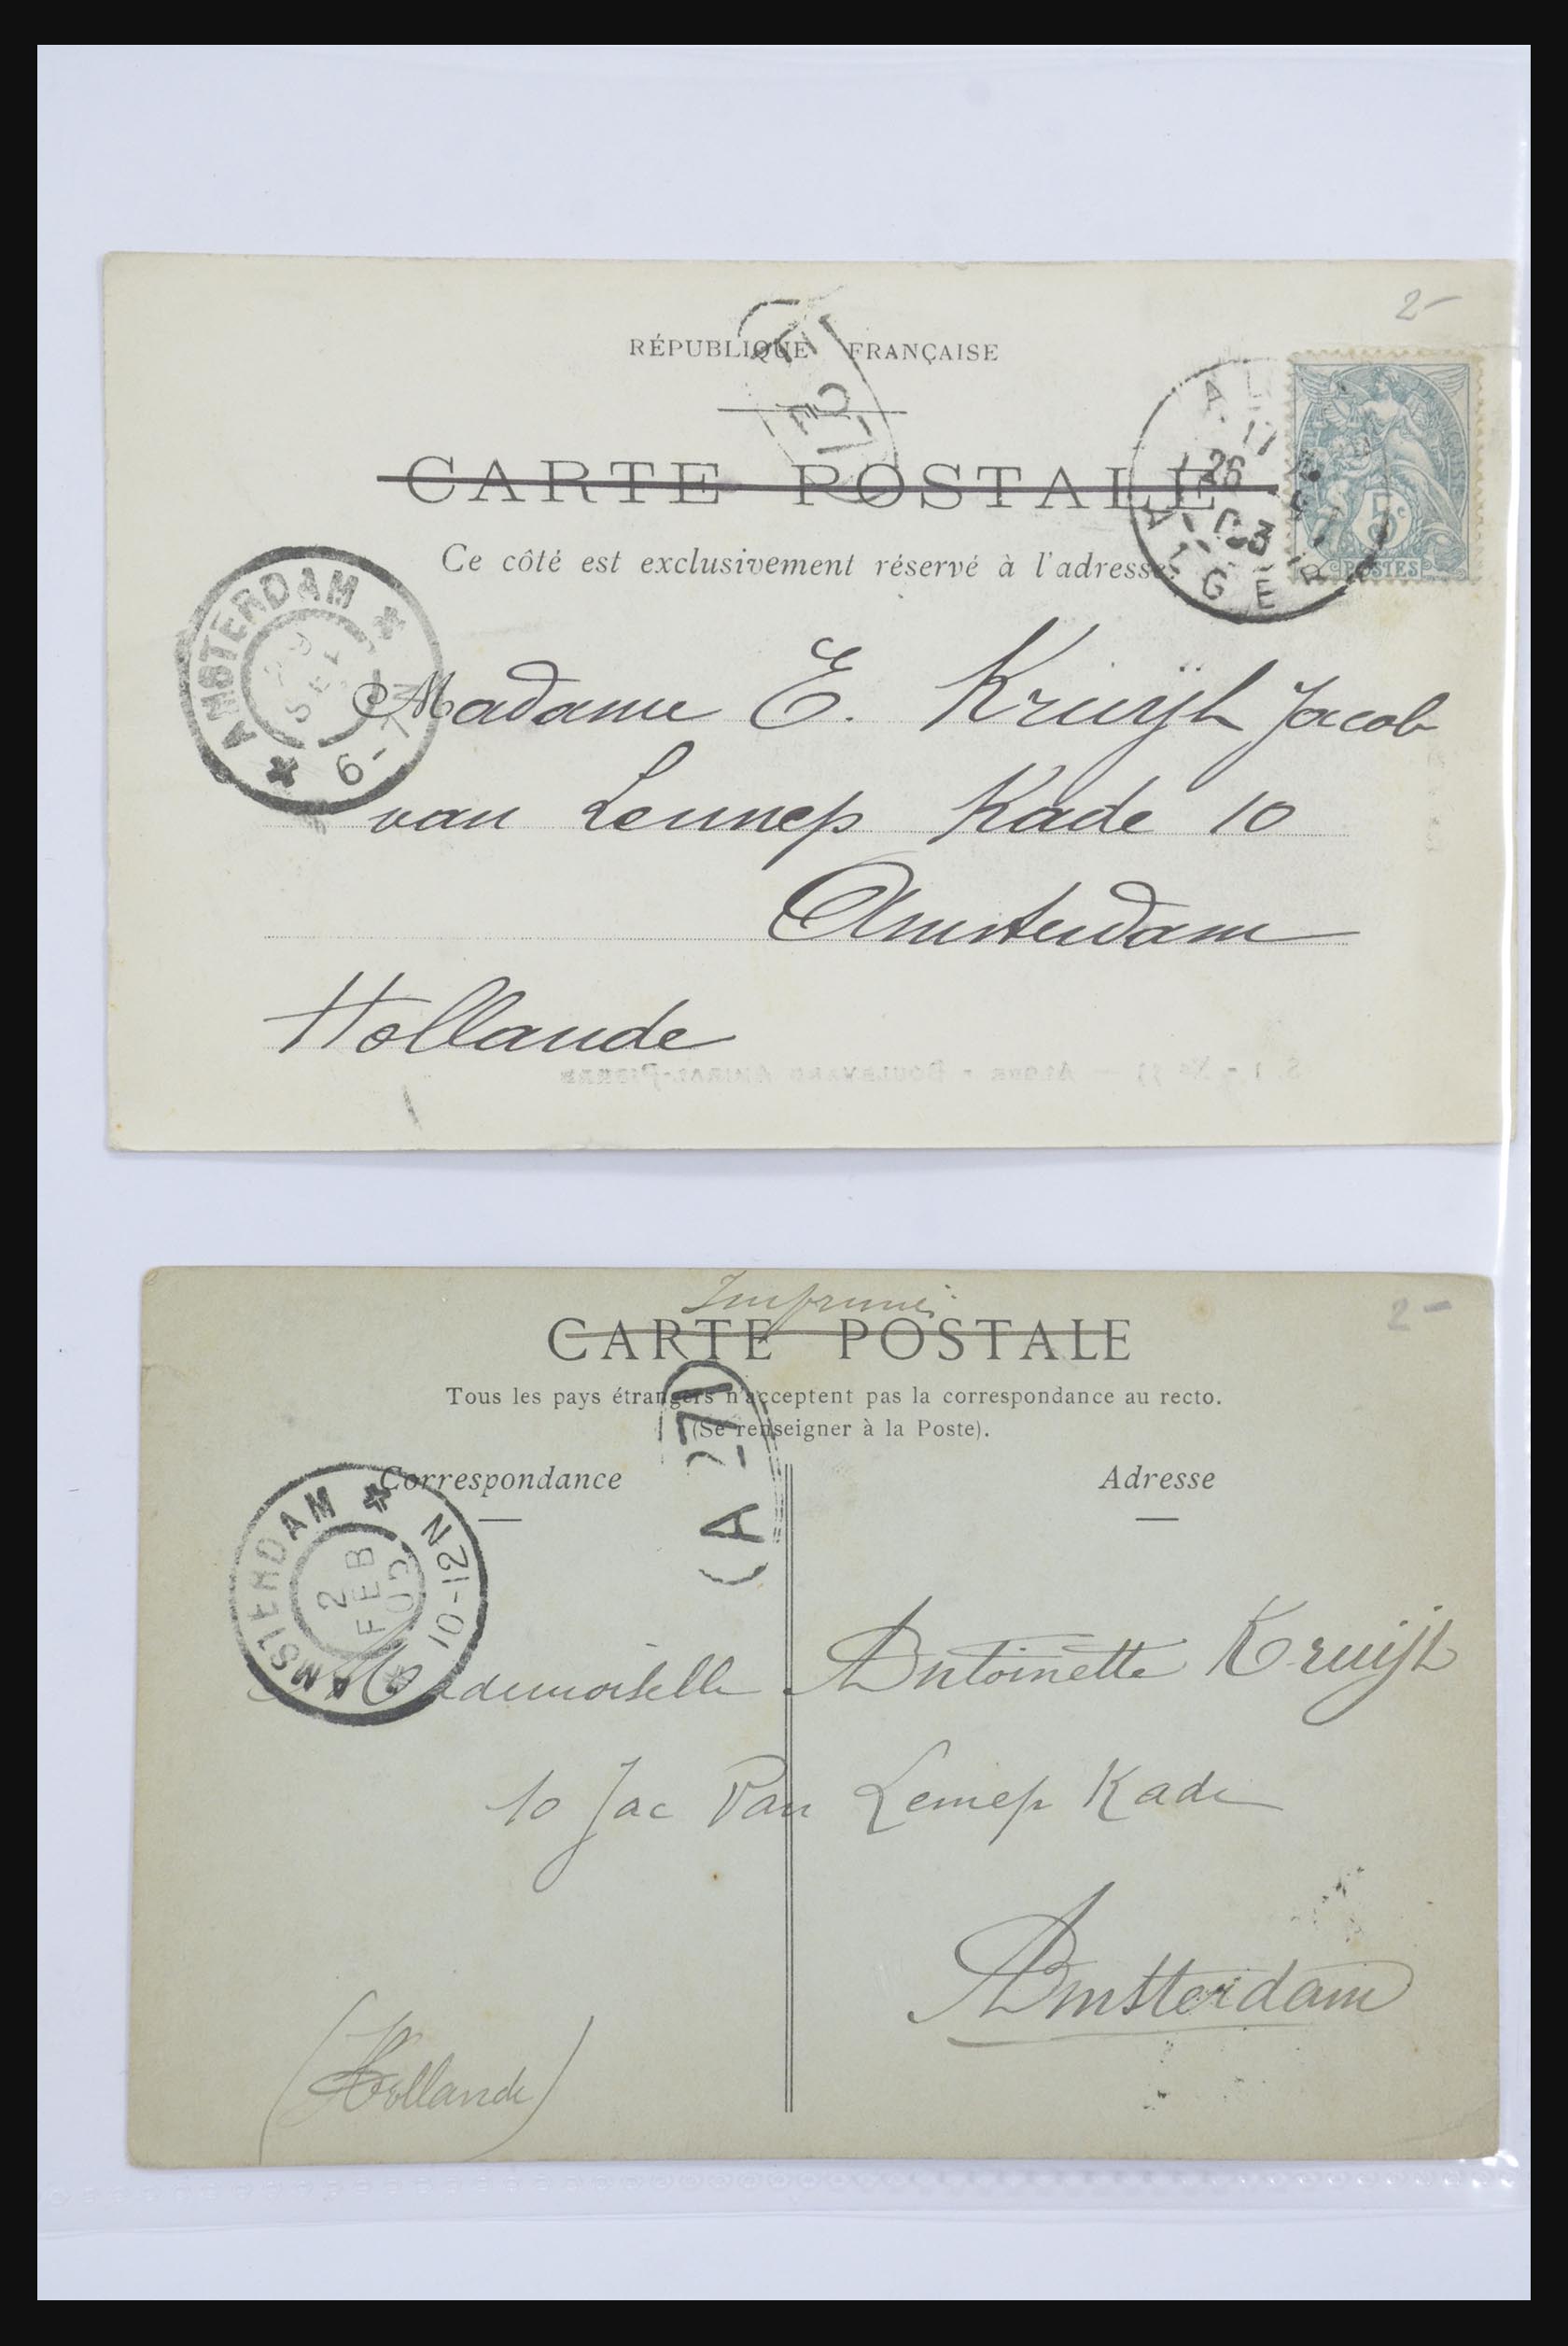 2-
RÉPUBLIQUE FRANÇAISE
CARTE POSTALE
Ce côté est exclusivement réservé à l'adresse.
ALGER
17
26
03
ALGER
5c
POSTES
AMSTERDAM
SEP
6-7
Madame E. Kruijh Jacob
van Lennep Kade 10
Amsterdam
Hollande
Imprimé
2-
CARTE POSTALE
Tous les pays étrangers n'acceptent pas la correspondance au recto.
(Se renseigner à la Poste).
Correspondance
Adresse
A 27
AMSTERDAM
2
FEB
10-12 N
Mademoiselle Antoinette Kruijh
10 Jac Van Lennep Kade
Amsterdam
(Hollande)